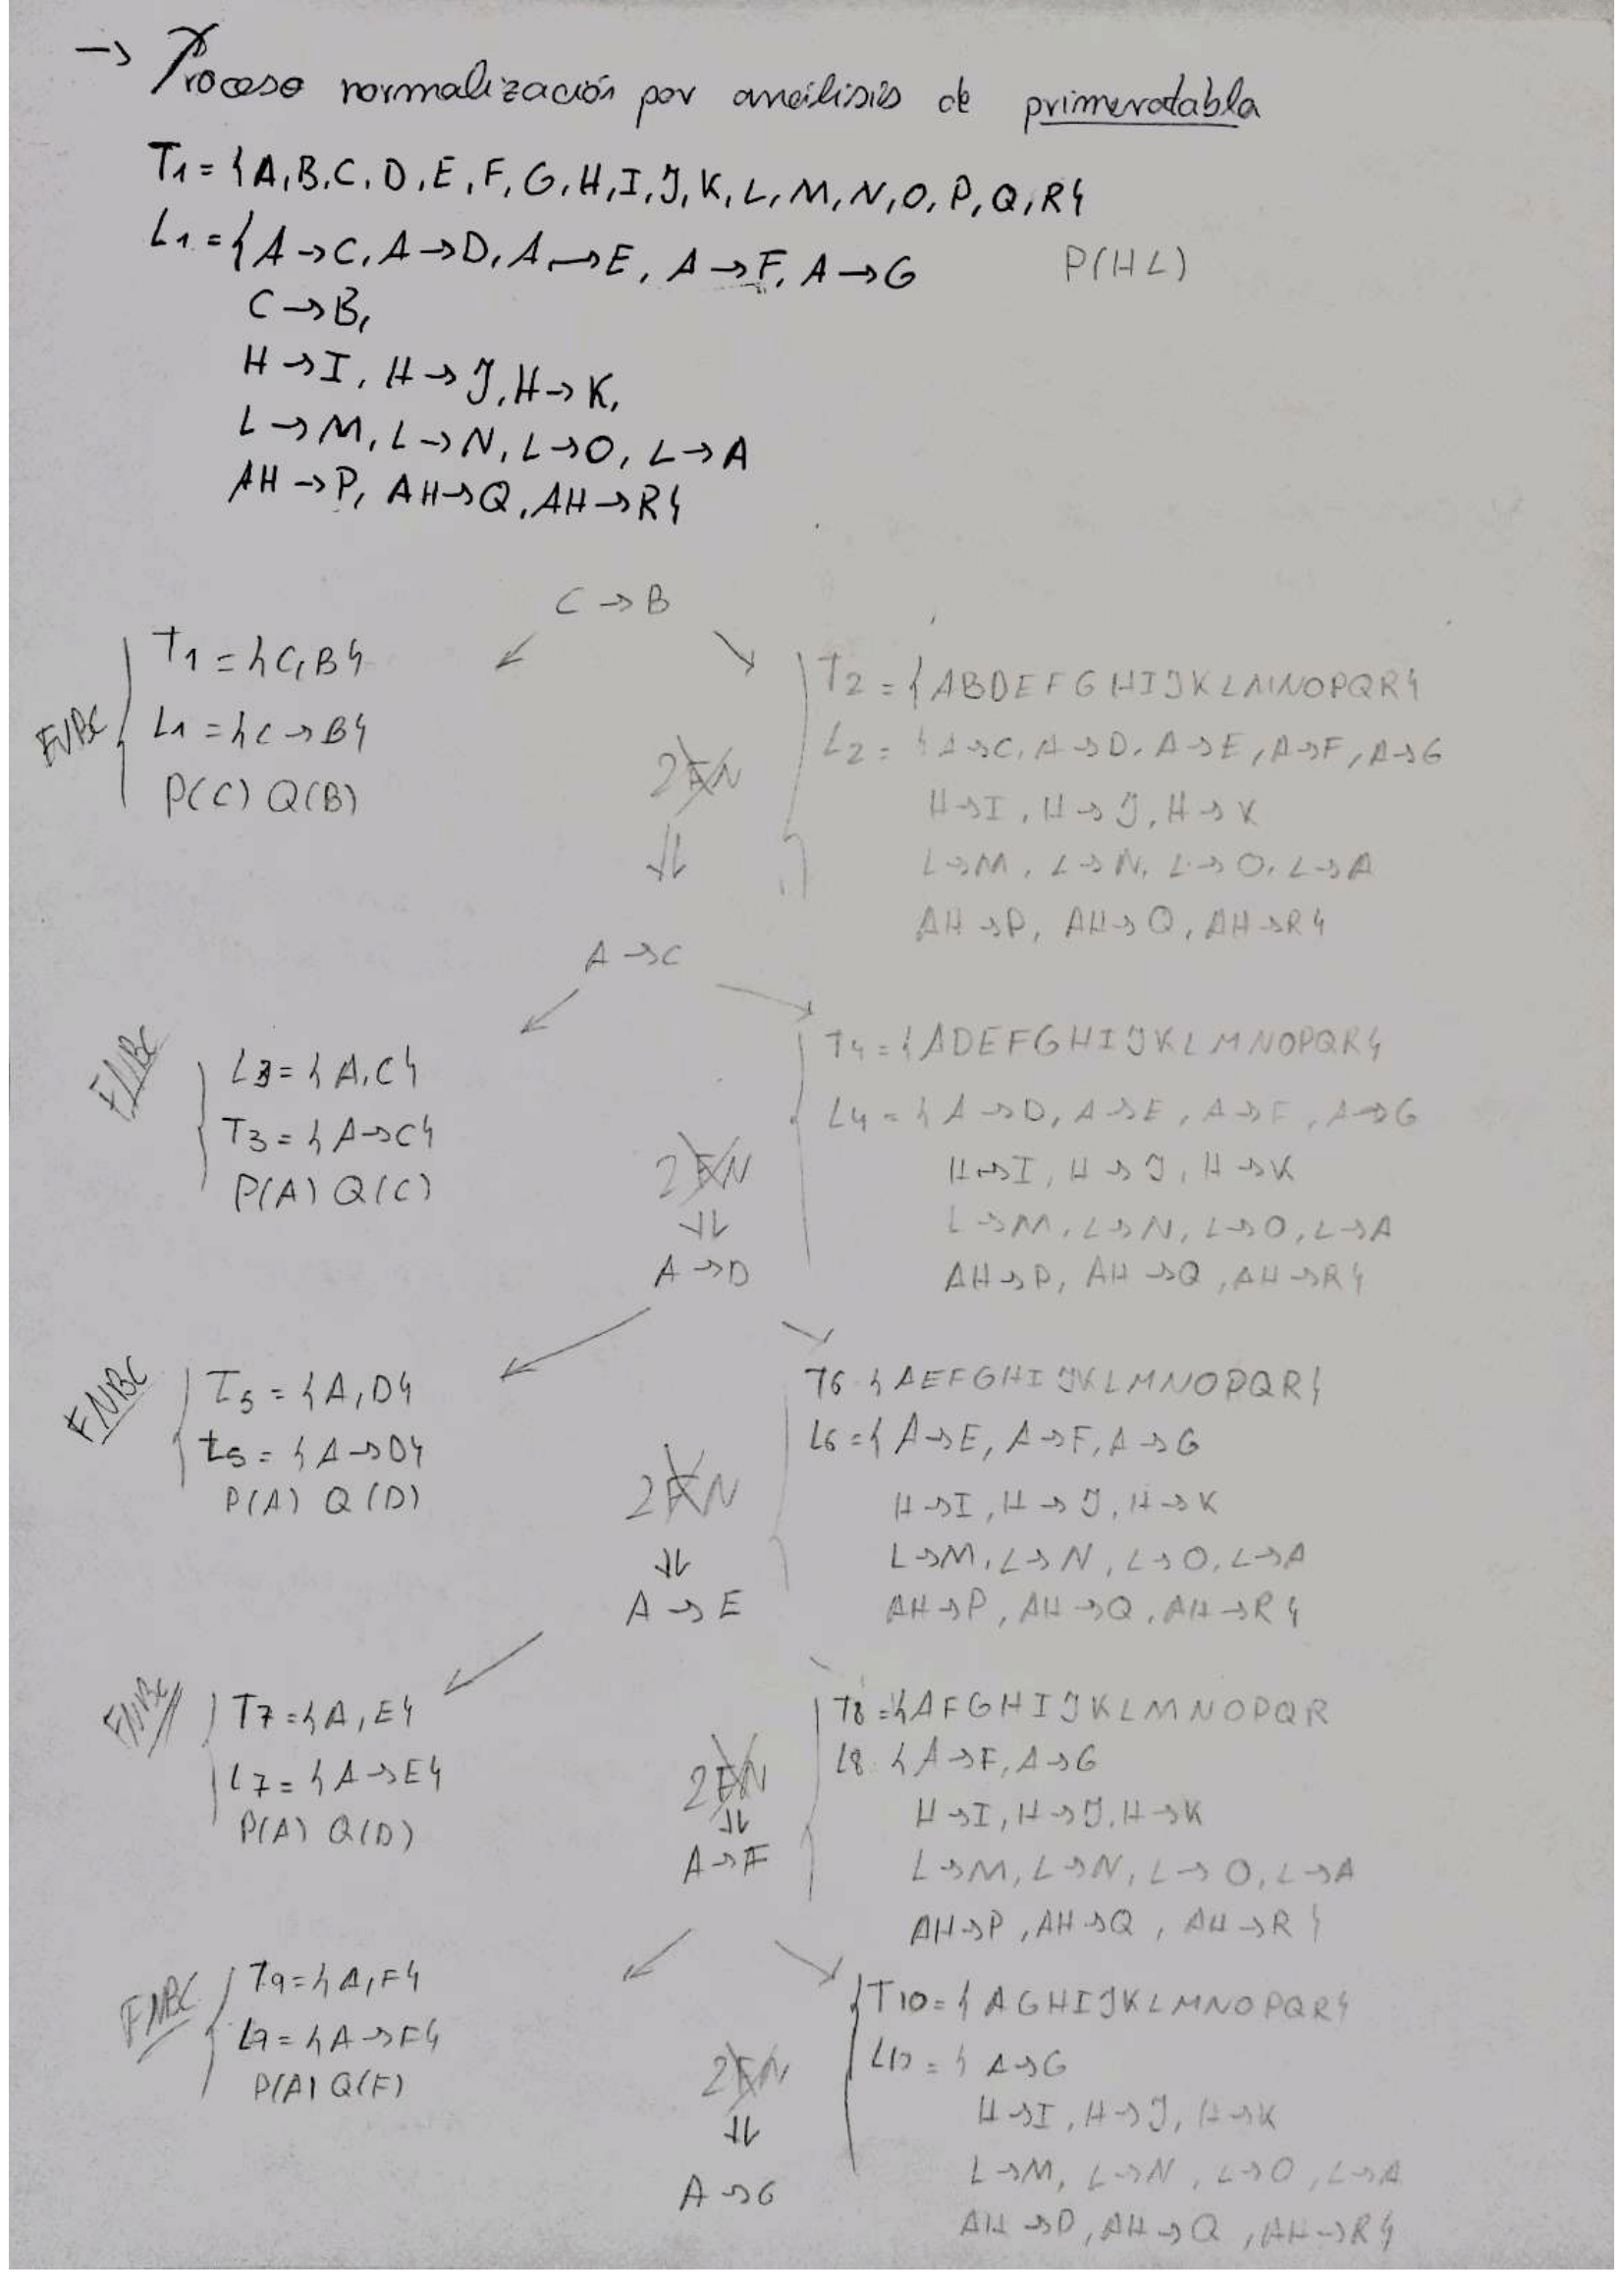 → Proceso normalización por análisis de primeratabla
T1 = {A,B,C,D,E,F,G,H,I,J,K,L,M,N,O,P,Q,R}
L1 = {A→C, A→D, A→E, A→F, A→G
P(HL)
C→B,
H→I, H→J, H→K,
L→M, L→N, L→O, L→A
AH→P, AH→Q, AH→R}
C→B
FNBC
T1 = {C,B}
L1 = {C→B}
P(C) Q(B)
2FN
⇓
T2 = {ABDEFGHIJKLMNOPQR}
L2 = {A→C, A→D, A→E, A→F, A→G
H→I, H→J, H→K
L→M, L→N, L→O, L→A
AH→P, AH→Q, AH→R}
A→C
FNBC
L3 = {A,C}
T3 = {A→C}
P(A) Q(C)
2FN
⇓
T4 = {ADEFGHIJKLMNOPQR}
L4 = {A→D, A→E, A→F, A→G
H→I, H→J, H→K
L→M, L→N, L→O, L→A
AH→P, AH→Q, AH→R}
A→D
FNBC
T5 = {A,D}
L5 = {A→D}
P(A) Q(D)
2FN
⇓
T6 {AEFGHIJKLMNOPQR}
L6 = {A→E, A→F, A→G
H→I, H→J, H→K
L→M, L→N, L→O, L→A
AH→P, AH→Q, AH→R}
A→E
FNBC
T7 = {A,E}
L7 = {A→E}
P(A) Q(D)
2FN
⇓
T8 = {AFGHIJKLMNOPQR
L8 {A→F, A→G
H→I, H→J, H→K
L→M, L→N, L→O, L→A
AH→P, AH→Q, AH→R}
A→F
FNBC
T9 = {A,F}
L9 = {A→F}
P(A) Q(F)
2FN
⇓
T10 = {AGHIJKLMNOPQR}
L10 = {A→G
H→I, H→J, H→K
L→M, L→N, L→O, L→A
AH→P, AH→Q, AH→R}
A→G